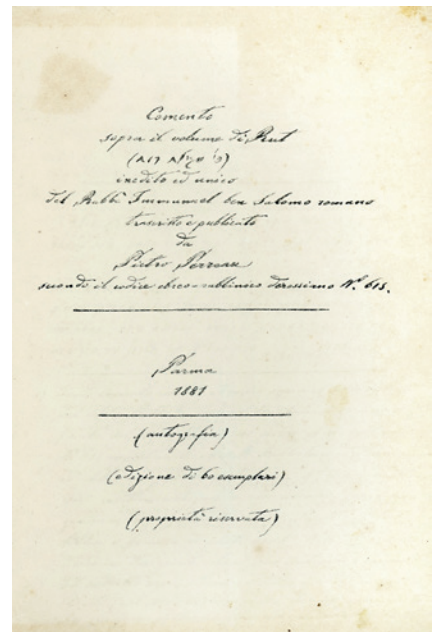 Comento
sopra il volume di Rut
(פי' מגילת רות)
inedito ed unico
del Rabbi Immanuel ben Salomo romano
trascritto e publicato
da
Pietro Perreau
secondo il codice ebreo-rabbinico derossiano Nº. 615.
Parma
1881
(autografia)
(edizione di 60 esemplari)
(proprietà riservata)